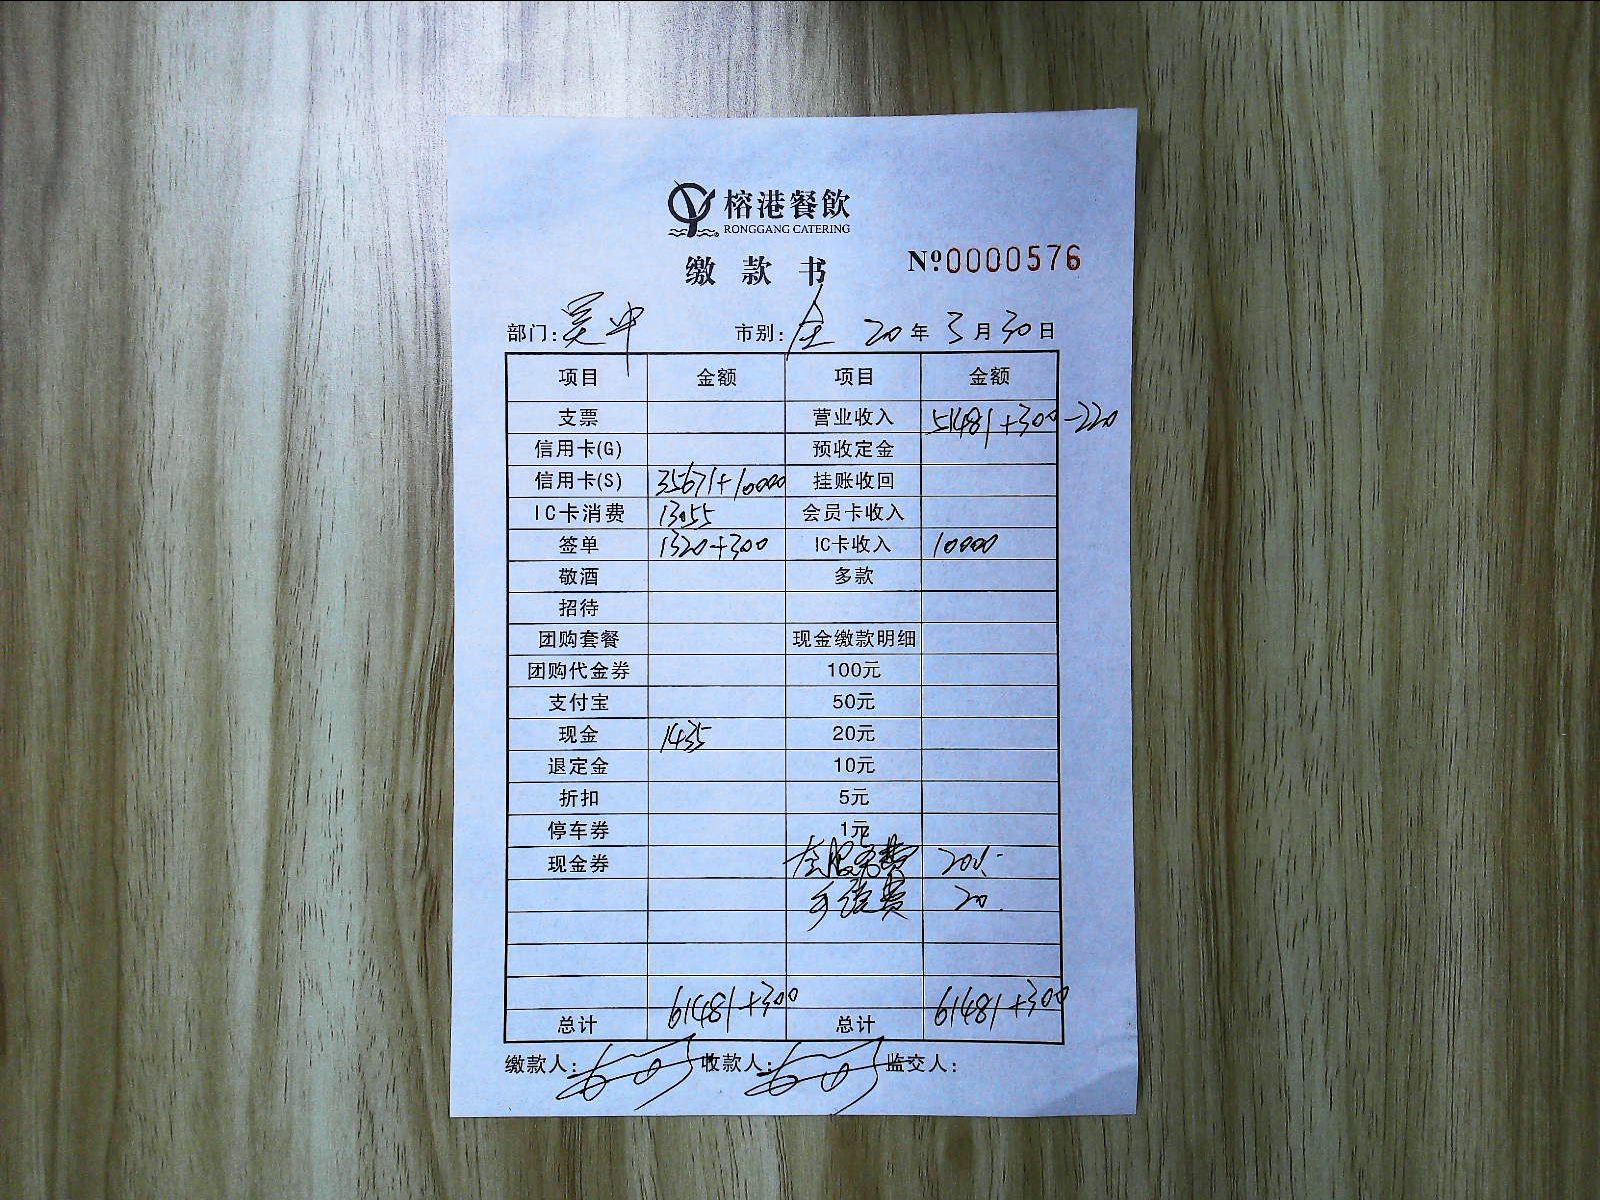 榕港餐飲
RONGGANG CATERING
缴款书 Nº0000576
部门: 吴中 市别: 全 20年3月30日
项目 金额 项目 金额
支票 营业收入 51481+300-220
信用卡(G) 预收定金
信用卡(S) 35671+10000 挂账收回
IC卡消费 13055 会员卡收入
签单 1320+300 IC卡收入 10000
敬酒 多款
招待
团购套餐 现金缴款明细
团购代金券 100元
支付宝 50元
现金 1435 20元
退定金 10元
折扣 5元
停车券 1元
现金券 服务费 200.-
手续费 20.
总计 61481+300 总计 61481+300
缴款人: 收款人: 监交人: